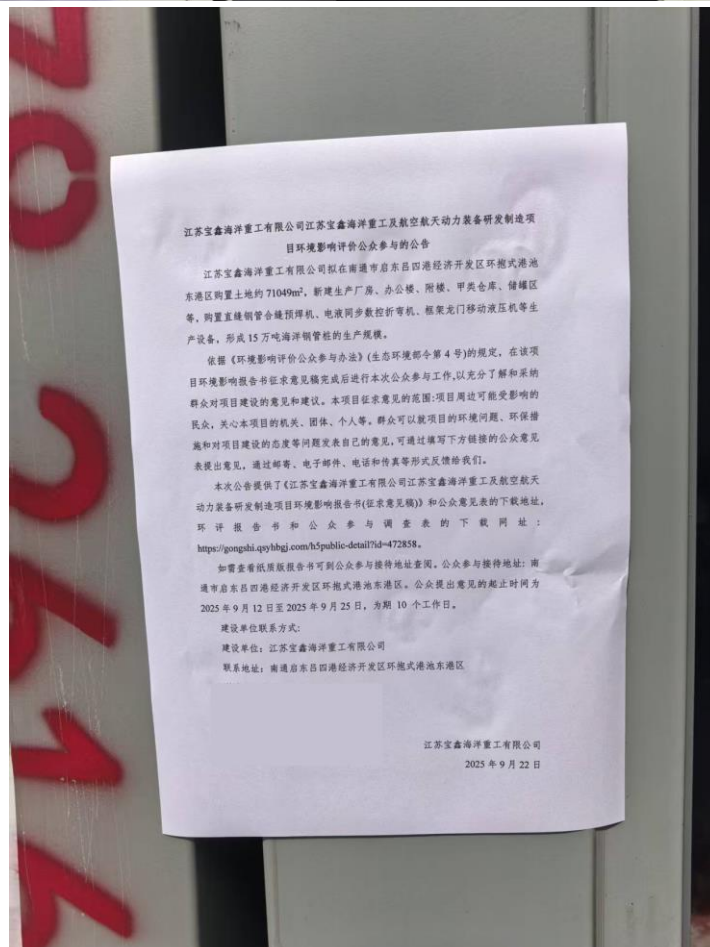 江苏宝鑫海洋重工有限公司江苏宝鑫海洋重工及航空航天动力装备研发制造项
目环境影响评价公众参与的公告
江苏宝鑫海洋重工有限公司拟在南通市启东吕四港经济开发区环抱式港池
东港区购置土地约 71049m²，新建生产厂房、办公楼、附楼、甲类仓库、储罐区
等，购置直缝钢管合缝预焊机、电液同步数控折弯机、框架龙门移动液压机等生
产设备，形成 15 万吨海洋钢管桩的生产规模。
依据《环境影响评价公众参与办法》(生态环境部令第 4 号)的规定，在该项
目环境影响报告书征求意见稿完成后进行本次公众参与工作,以充分了解和采纳
群众对项目建设的意见和建议。本项目征求意见的范围:项目周边可能受影响的
民众，关心本项目的机关、团体、个人等。群众可以就项目的环境问题、环保措
施和对项目建设的态度等问题发表自己的意见，可通过填写下方链接的公众意见
表提出意见，通过邮寄、电子邮件、电话和传真等形式反馈给我们。
本次公告提供了《江苏宝鑫海洋重工有限公司江苏宝鑫海洋重工及航空航天
动力装备研发制造项目环境影响报告书(征求意见稿)》和公众意见表的下载地址，
环评报告书和公众参与调查表的下载网址：
https://gongshi.qsyhbgj.com/h5public-detail?id=472858。
如需查看纸质版报告书可到公众参与接待地址查阅。公众参与接待地址：南
通市启东吕四港经济开发区环抱式港池东港区。公众提出意见的起止时间为
2025 年 9 月 12 日至 2025 年 9 月 25 日，为期 10 个工作日。
建设单位联系方式:
建设单位：江苏宝鑫海洋重工有限公司
联系地址：南通启东吕四港经济开发区环抱式港池东港区
江苏宝鑫海洋重工有限公司
2025 年 9 月 22 日